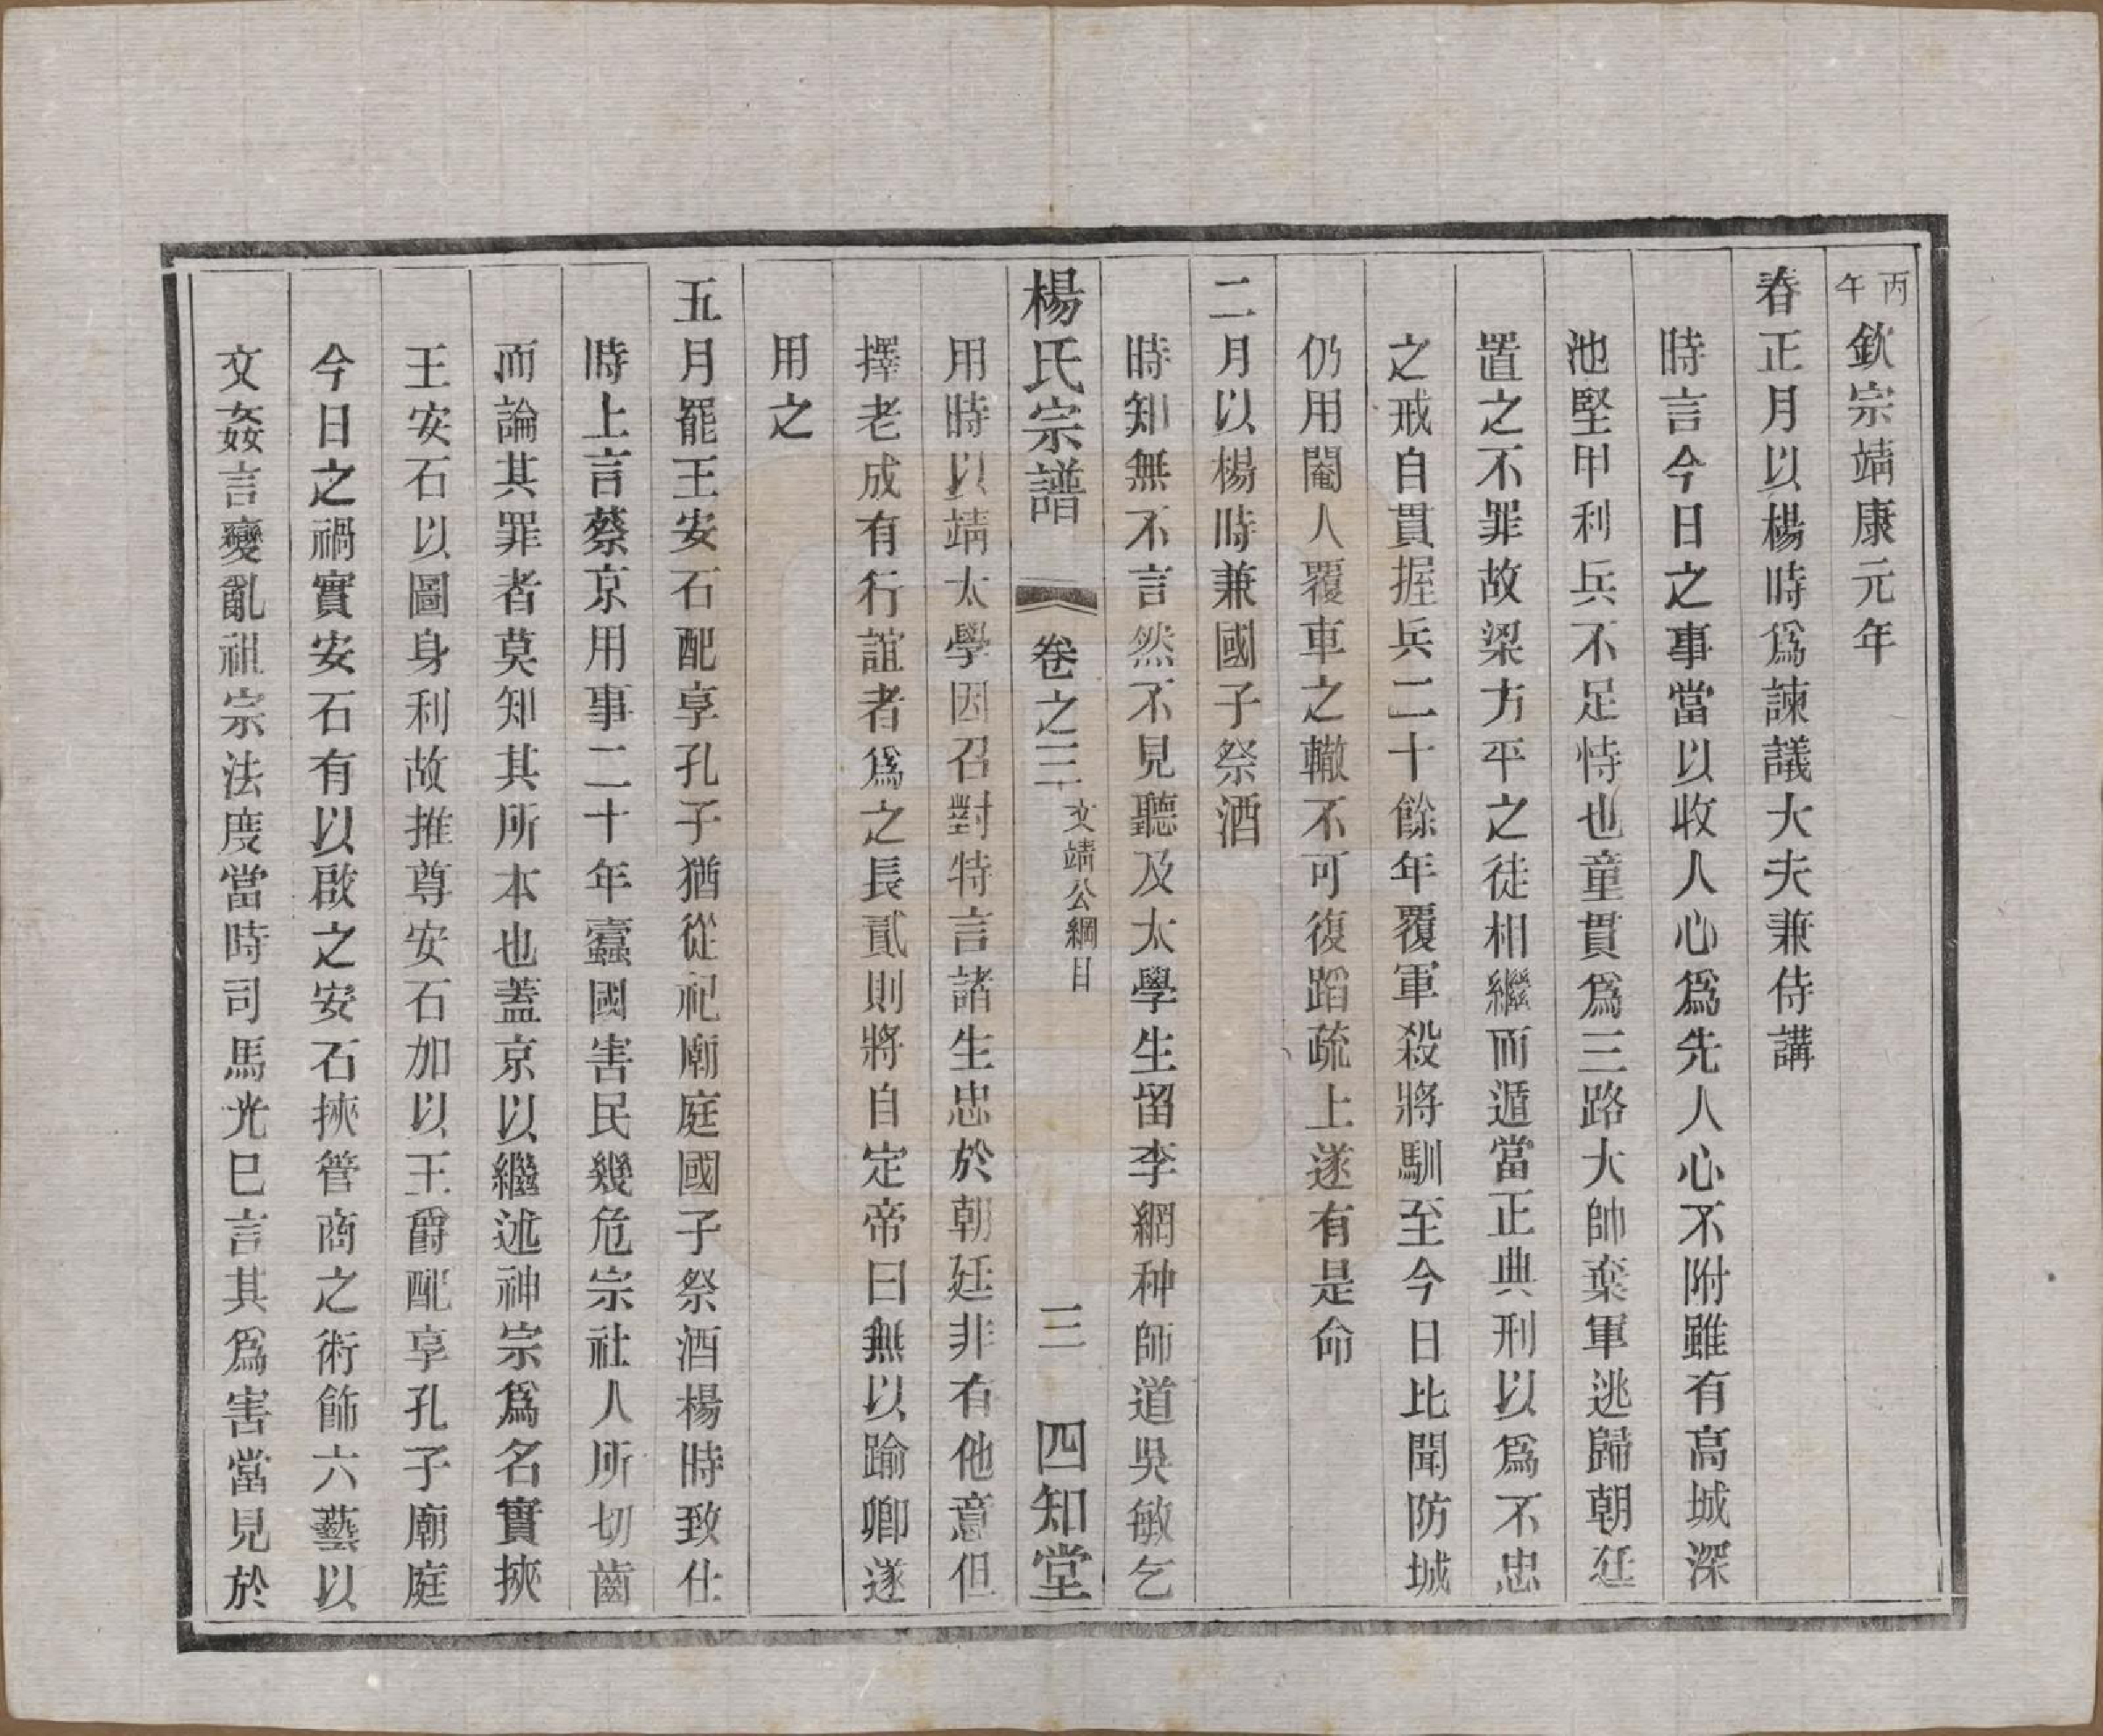 丙午欽宗靖康元年
春正月以楊時爲諫議大夫兼侍講
時言今日之事當以收人心爲先人心不附雖有高城深
池堅甲利兵不足恃也童貫爲三路大帥棄軍逃歸朝廷
置之不罪故梁方平之徒相繼而遁當正典刑以爲不忠
之戒自貫握兵二十餘年覆軍殺將馴至今日比聞防城
仍用閹人覆車之轍不可復蹈疏上遂有是命
二月以楊時兼國子祭酒
時知無不言然不見聽及太學生留李網种師道吳敏乞
楊氏宗譜 卷之三 文靖公綱目 三 四知堂
用時以靖太學因召對特言諸生忠於朝廷非有他意但
擇老成有行誼者爲之長貳則將自定帝曰無以踰卿遂
用之
五月罷王安石配享孔子猶從祀廟庭國子祭酒楊時致仕
時上言蔡京用事二十年蠹國害民幾危宗社人所切齒
而論其罪者莫知其所本也蓋京以繼述神宗爲名實挾
王安石以圖身利故推尊安石加以王爵配享孔子廟庭
今日之禍實安石有以啟之安石挾管商之術飾六藝以
文姦言變亂祖宗法度當時司馬光巳言其爲害當見於